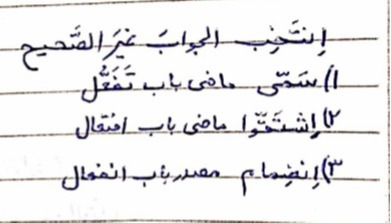 إنتَخِب الجوابَ غیرَ الصَّحیح
۱) سَمّی ماضی باب تَفَعُّل
۲) اِشتَقّوا ماضی باب افتعال
۳) اِنضِمام مصدر باب انفعال